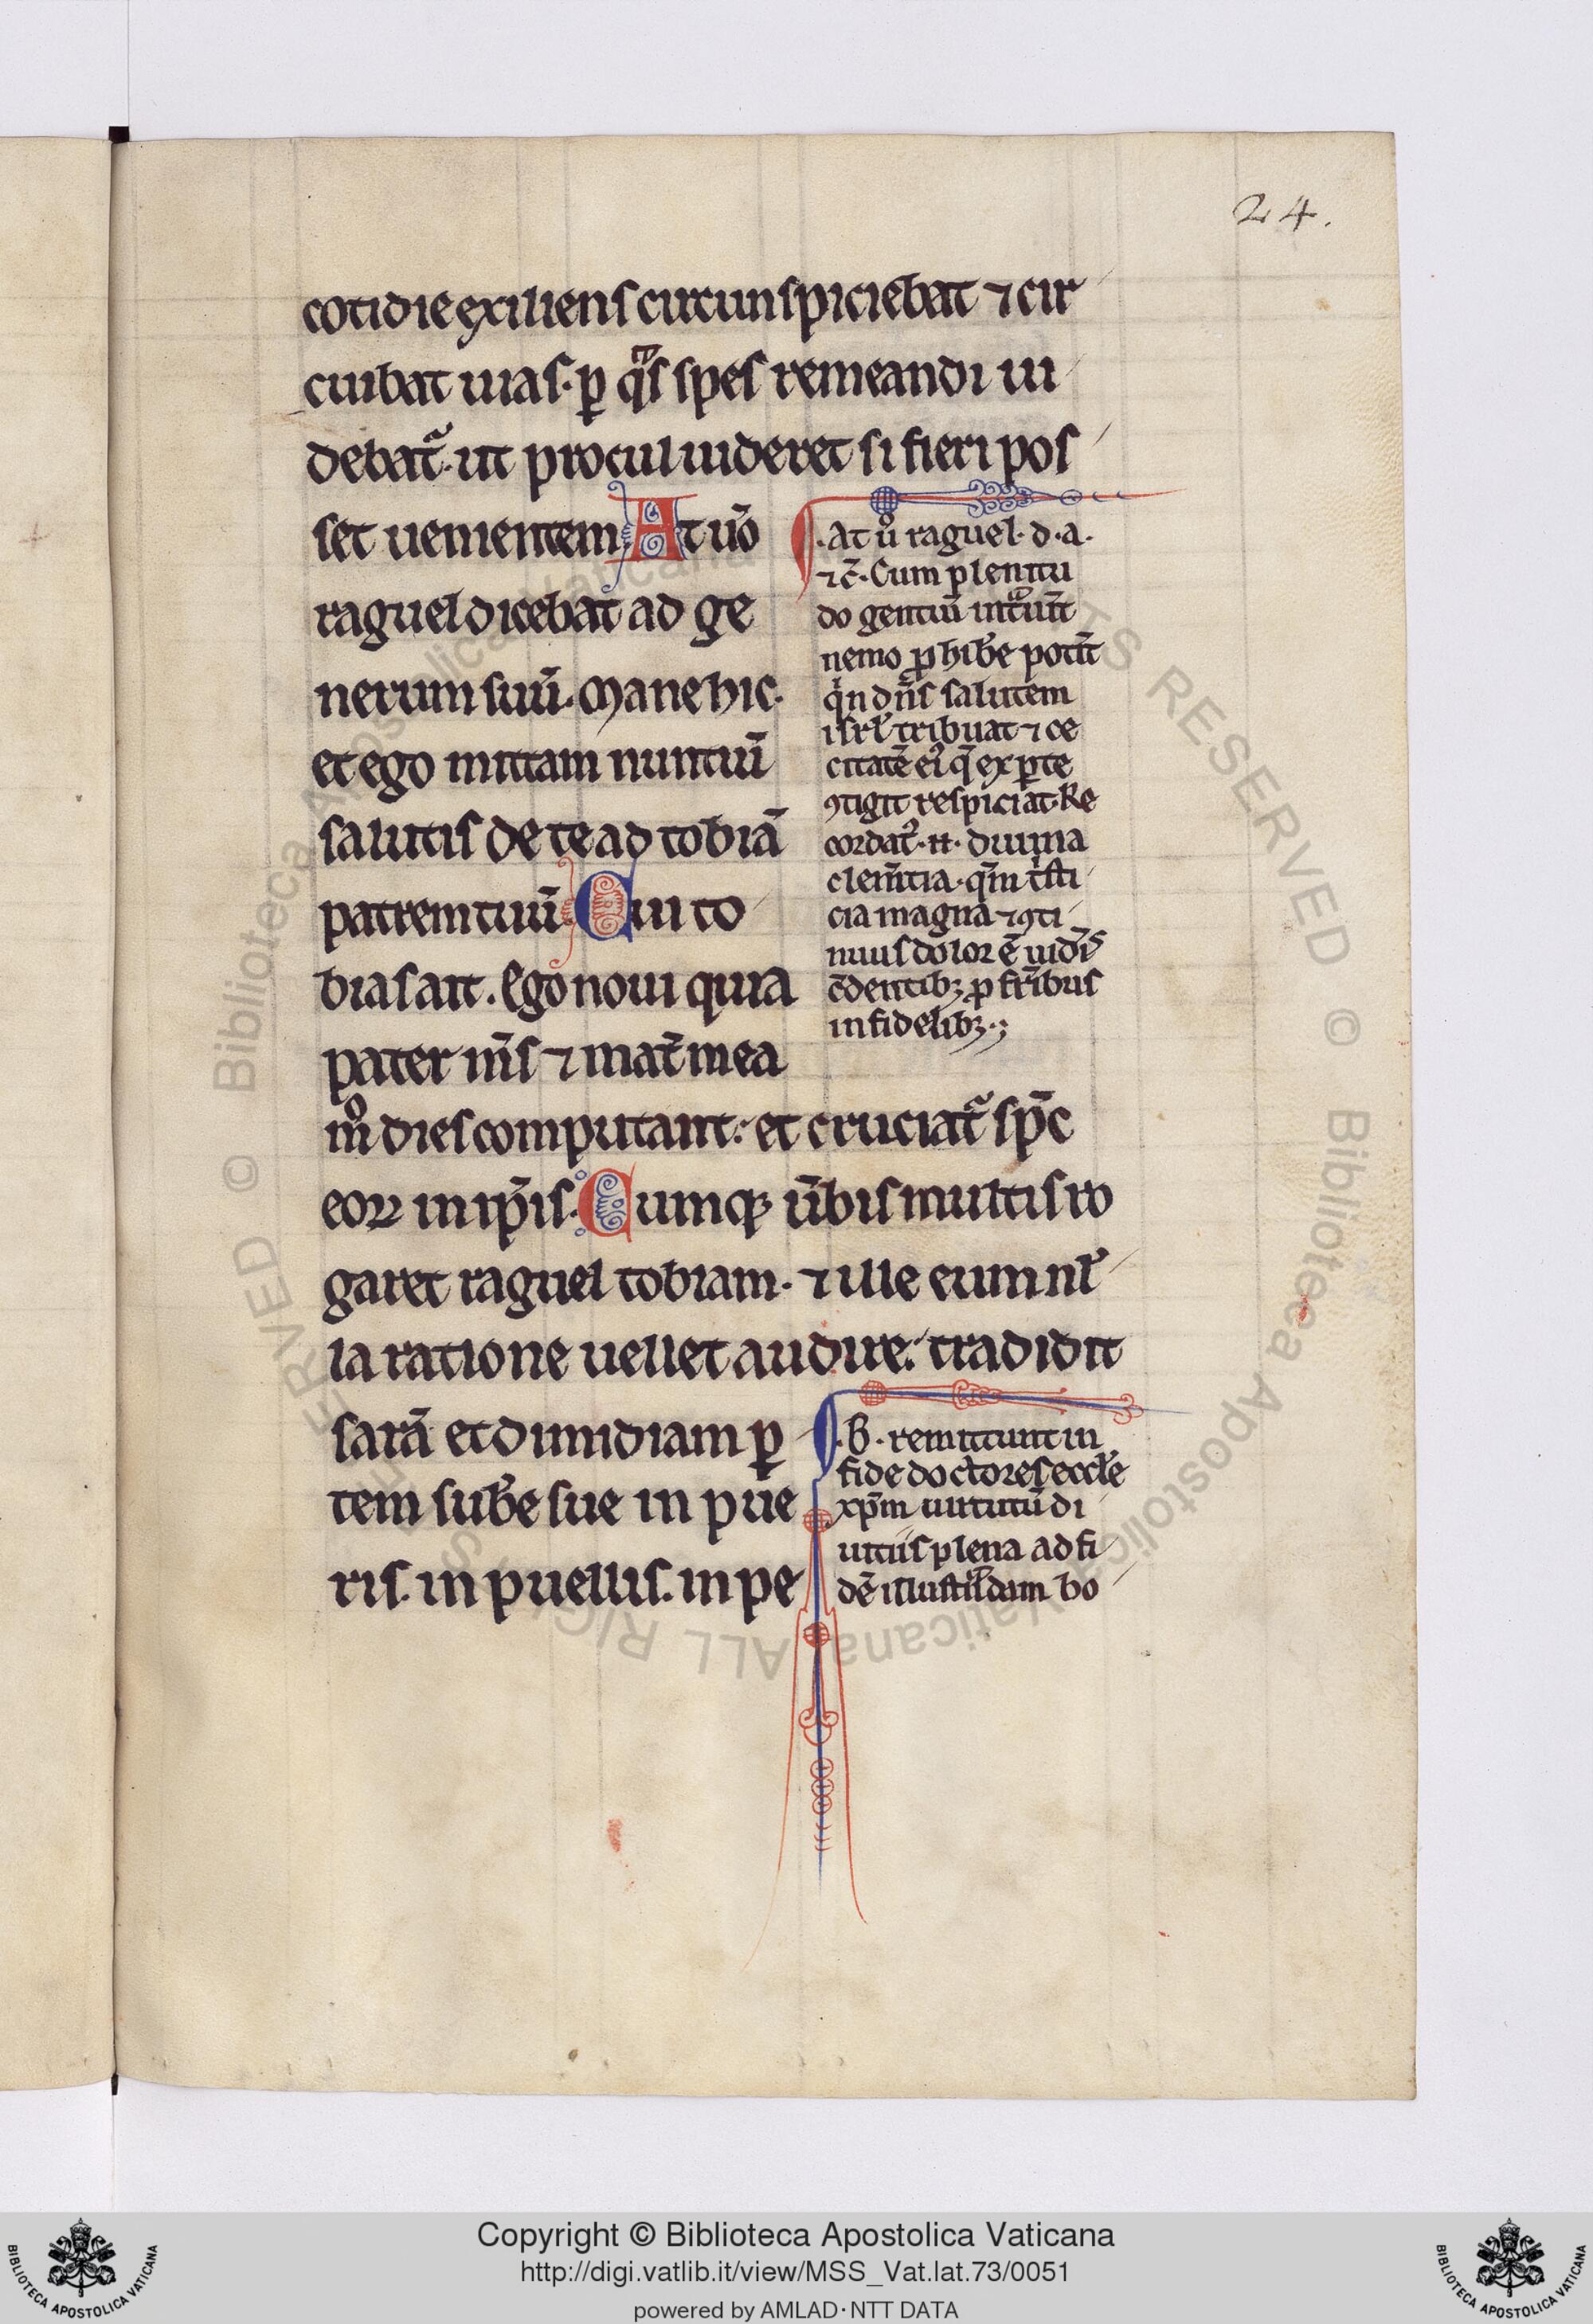 24.
cotidie exiliens circunspiciebat ⁊ cir
cuibat uias. ꝑ q̃s spes remeandi ui
debat᷑. ut procul uideret si fieri pos
set uenientem. At uo᷑
raguel dicebat ad ge
nerum suũ. Mane hic.
et ego mittam nuntiũ
salutis de te ad tobiã
patrem tuũ. Cui to
bias ait. Ego noui quia
pater m̃s ⁊ mat̃ mea
mͦ dies computant: et cruciat᷑ sp̃c
eoꝝ in ip̃is. Cumqꝫ ũbis multis ro
garet raguel tobiam. ⁊ ille eum nl̾
la ratione uellet audire: tradidit
sarã et dimidiam ꝑ
tem sub̾e sue in pue
ris. in puellis. in pe
.At uͦ raguel. d. a.
⁊c̃. Cum plenitu
do gentiũ int̾uñt
nemo ꝓhib̾e potit̃
qͥn dñs salutem
isrl̾ tribuat ⁊ ce
citatẽ eiꝰ q̃ ex ꝑte
ꝯtigit respiciat. Re
cordat᷑. n̄. diuina
clem̃tia. qm̃ tͥsti
cia magna ⁊ ꝯti
nuus dolor ẽ uid̾is
c̾dentibꝫ ꝓ fr̃ibus
infidelibꝫ.;
.B. remittunt in
fide doctores eccl̾e
xp̃m uirtutũ di
uitiis plena ad fi
dẽ illustͣdam bo
Copyright © Biblioteca Apostolica Vaticana
http://digi.vatlib.it/view/MSS_Vat.lat.73/0051
powered by AMLAD·NTT DATA
BIBLIOTECA APOSTOLICA VATICANA
BIBLIOTECA APOSTOLICA VATICANA